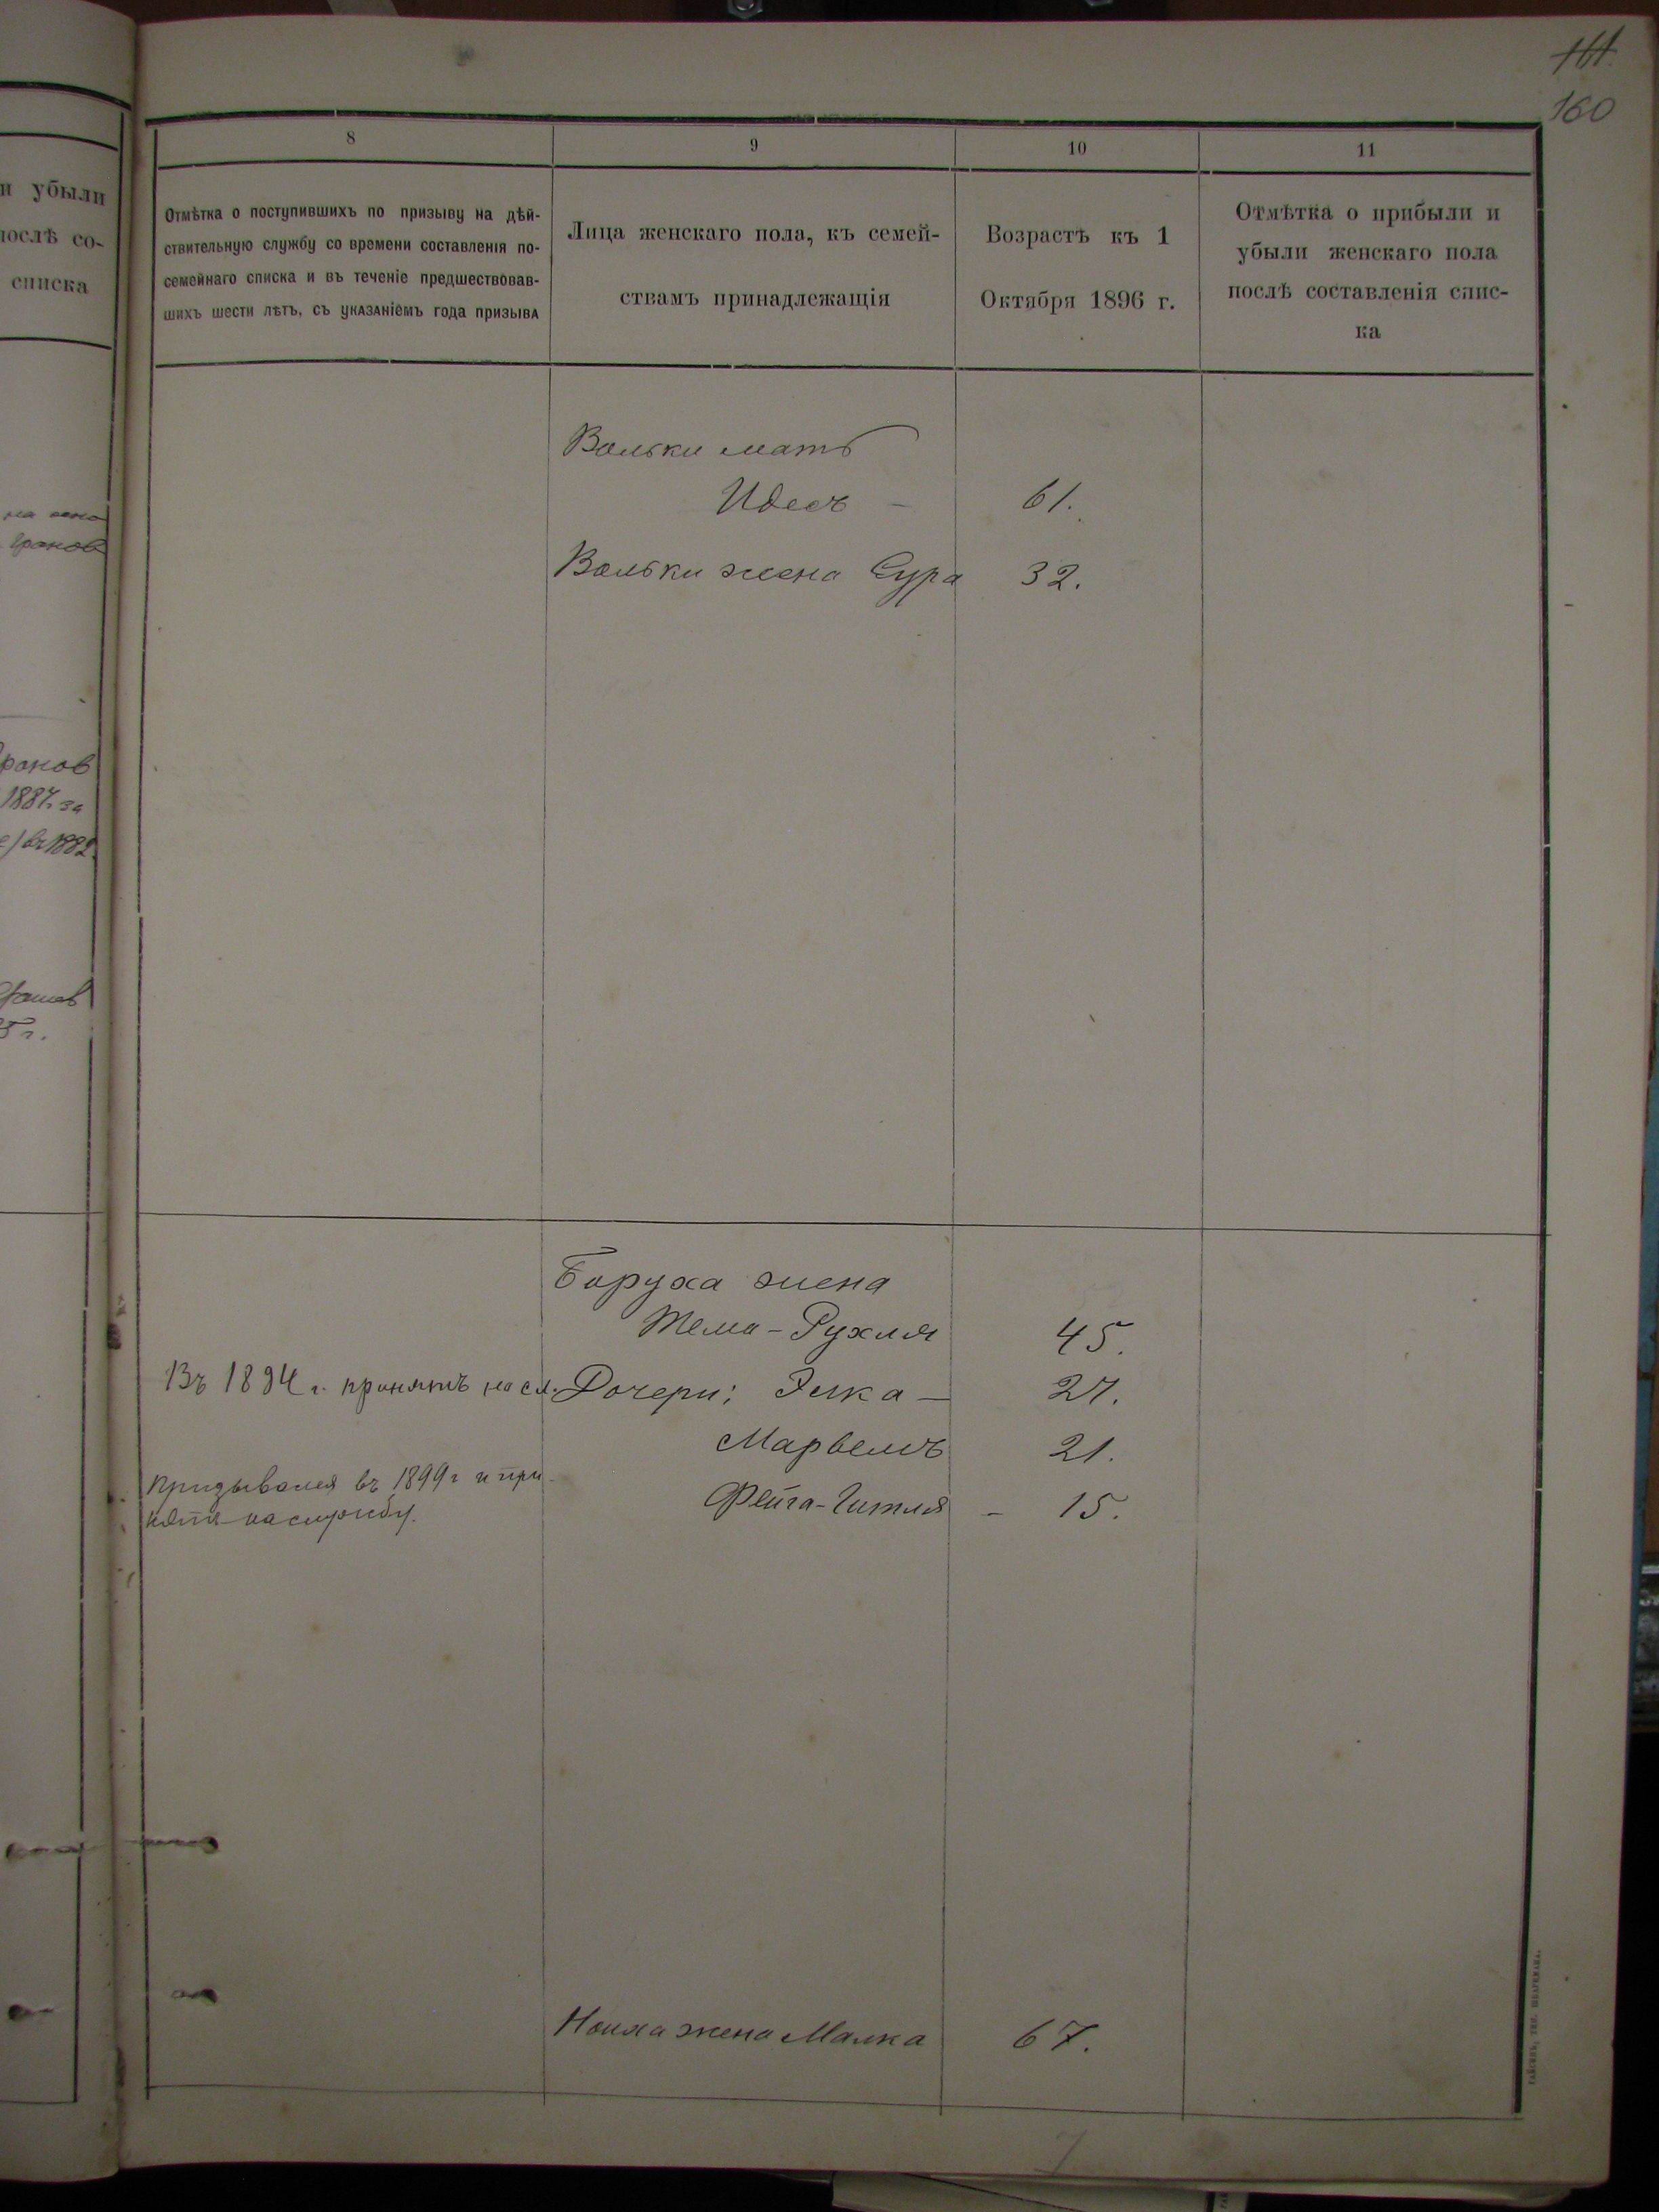 161
160
и убыли
послѣ со-
списка
8
9
10
11
Отмѣтка о поступившихъ по призыву на дѣй-
ствительную службу со времени составленія по-
семейнаго списка и въ теченіе предшествовав-
шихъ шести лѣтъ, съ указаніемъ года призыва
Лица женскаго пола, къ семей-
ствамъ принадлежащія
Возрастъ къ 1
Октября 1896 г.
Отмѣтка о прибыли и
убыли женскаго пола
послѣ составленія спис-
ка
Вольки мать
Идесъ – 61.
Вольки жена Сура 32.
1887. за
въ 1882
5 г.
Боруха жена
Тема-Рухля 45.
Въ 1894 г. принятъ на сл. Дочери: Элка – 27.
Марвемъ 21.
Призывался въ 1899 г и при-
нятъ на службу.
Фейга-Гитля – 15.
жена Малка 67.
7
ГАЙСИНЪ, ТИП.